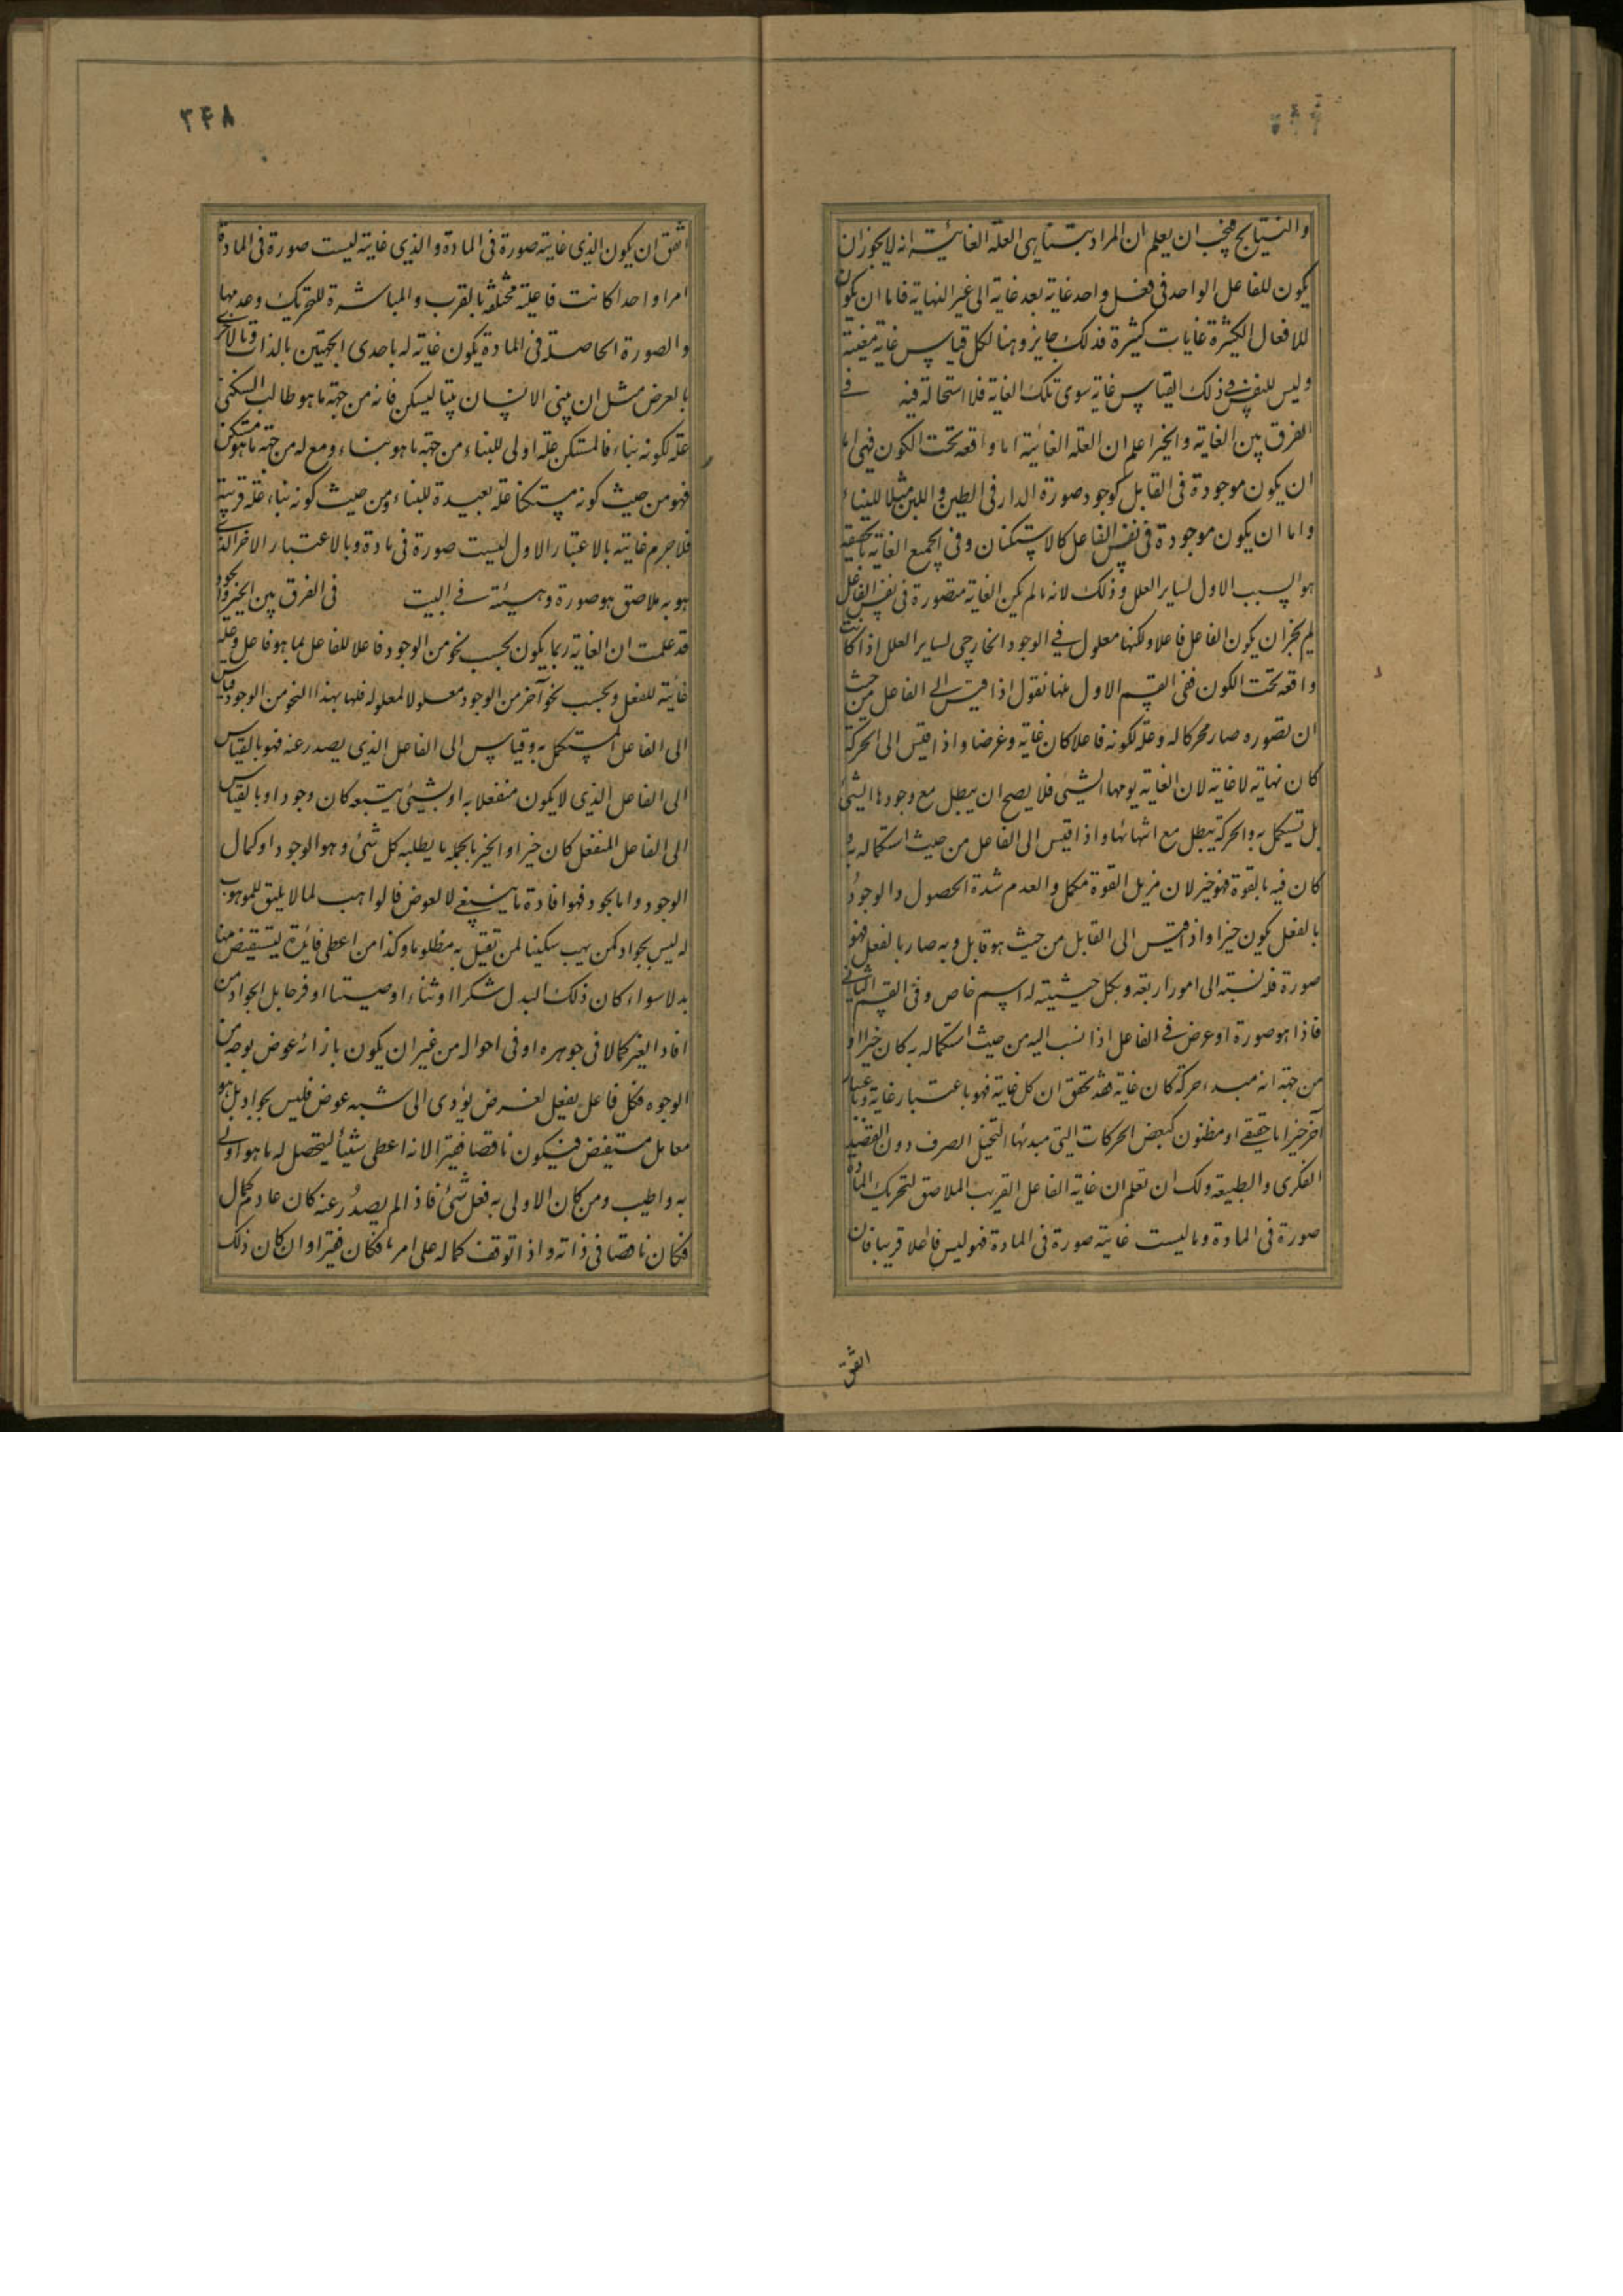 والنتایج فیجب ان یعلم ان المراد بتناهی العلة الغائیة انه لا یجوز ان
یکون للفاعل الواحد فی فعل واحد غایة بعد غایة الی غیر النهایة فاما ان یکون
للافعال الکثیرة غایات کثیرة فذلک جایز وهنا لکل قیاس غایة معینة
ولیس للنفس فی ذلک القیاس غایة سوی تلک الغایة فلا استحالة فیه فی
الفرق بین الغایة والخیر اعلم ان العلة الغائیة اما واقعة تحت الکون فهی اما
ان یکون موجودة فی القابل کوجود صورة الدار فی الطین واللبن مثلا للبناء
واما ان یکون موجودة فی نفس الفاعل کالاستکنان وفی الجمیع الغایة بالحقیقة
هو السبب الاول لسایر العلل وذلک لانه ما لم یکن الغایة متصورة فی نفس الفاعل
لم یجز ان یکون الفاعل فاعلا ولکنها معلول فی الوجود الخارجی لسایر العلل اذا کانت
واقعة تحت الکون ففی القسم الاول منها نقول اذا قیس الی الفاعل من حیث
ان تصوره صار محرکا له وعلة لکونه فاعلا کان غایة وغرضا واذا قیس الی الحرکة
کان نهایة لا غایة لان الغایة یومها الشیء فلا یصح ان یبطل مع وجودها الشیء
بل تستکمل به والحرکة یبطل مع انتهائها واذا قیس الی الفاعل من حیث استکماله به و
کان فیه بالقوة فهو خیر لان مزیل القوة مکمل والعدم شدة الحصول والوجود
بالفعل یکون خیرا واذا قیس الی القابل من حیث هو قابل وبه صار بالفعل فهو
صورة فله نسبة الی امور اربعة وبکل حیثیته له اسم خاص وفی القسم الثانی
فاذا هو صورة او عرض فی الفاعل اذا نسب الیه من حیث استکماله به کان خیرا او
من جهة انه مبدء حرکة کان غایة فقد تحقق ان کل غایة فهو باعتبار غایة وباعتبار
آخر خیر اما حقیقی او مظنون کبعض الحرکات التی مبدئها التخیل الصرف دون القصد
الفکری والطبیعة ولک ان تعلم ان غایة الفاعل القریب الملاصق لتحریک المادة
صورة فی المادة وما لیست غایته صورة فی المادة فهو لیس فاعلا قریبا فان
اتفق
۳۴۸
اتفق ان یکون الذی غایته صورة فی المادة والذی غایته لیست صورة فی المادة
امرا واحدا کانت فاعلیته مختلفة بالقرب والمباشرة للتحریک وعدمها
والصورة الحاصلة فی المادة یکون غایة له باحدی الجهتین بالذات وبالاخری
بالعرض مثل ان یبنی الانسان بیتا لیسکن فانه من جهة ما هو طالب السکنی
علة لکونه بناء فالمستکن علة اولی للبناء من جهة ما هو بناء ومعلوله من جهة ما هو مستکن
فهو من حیث کونه مستکنا علة بعیدة للبناء ومن حیث کونه بناء علة قریبة
فلا جرم غایته بالاعتبار الاول لیست صورة فی مادة وبالاعتبار الاخر الذی
هو به ملاصق هو صورة وهیئة فی البیت فی الفرق بین الخیر والجود
قد علمت ان الغایة ربما یکون بحسب نحو من الوجود فاعلا للفاعل بما هو فاعل وعلة
غائیة للفعل وبحسب نحو آخر من الوجود معلولا لمعلوله فلها بهذا النحو من الوجود قیاس
الی الفاعل المستکمل به وقیاس الی الفاعل الذی یصدر عنه فهو بالقیاس
الی الفاعل الذی لا یکون منفعلا به او بشیء یتبعه کان وجودا وبالقیاس
الی الفاعل المنفعل کان خیرا والخیر بالجملة ما یطلبه کل شیء وهو الوجود او کمال
الوجود واما الجود فهو افادة ما ینبغی لا لعوض فالواهب لما لا یلیق للموهوب
له لیس بجواد کمن یهب سکینا لمن تقتل به مظلوما وکذا من اعطی فائدة لیستفیض منها
بدلا سواء کان ذلک البدل شکرا او ثناء او صیتا او فرحا بل الجواد من
افاد الغیر کمالا فی جوهره او فی احواله من غیر ان یکون بازائه عوض بوجه من
الوجوه فکل فاعل یفعل لغرض یؤدی الی شبه عوض فلیس بجواد بل هو
معامل مستفیض فیکون ناقصا فقیرا لانه اعطی شیئا لیتحصل له ما هو اولی
به واطیب ومن کان الاولی به فعل شیء فاذا لم یصدر عنه کان عادم کمال
فکان ناقصا فی ذاته واذا توقف کماله علی امر ما فکان فقیرا وان کان ذلک